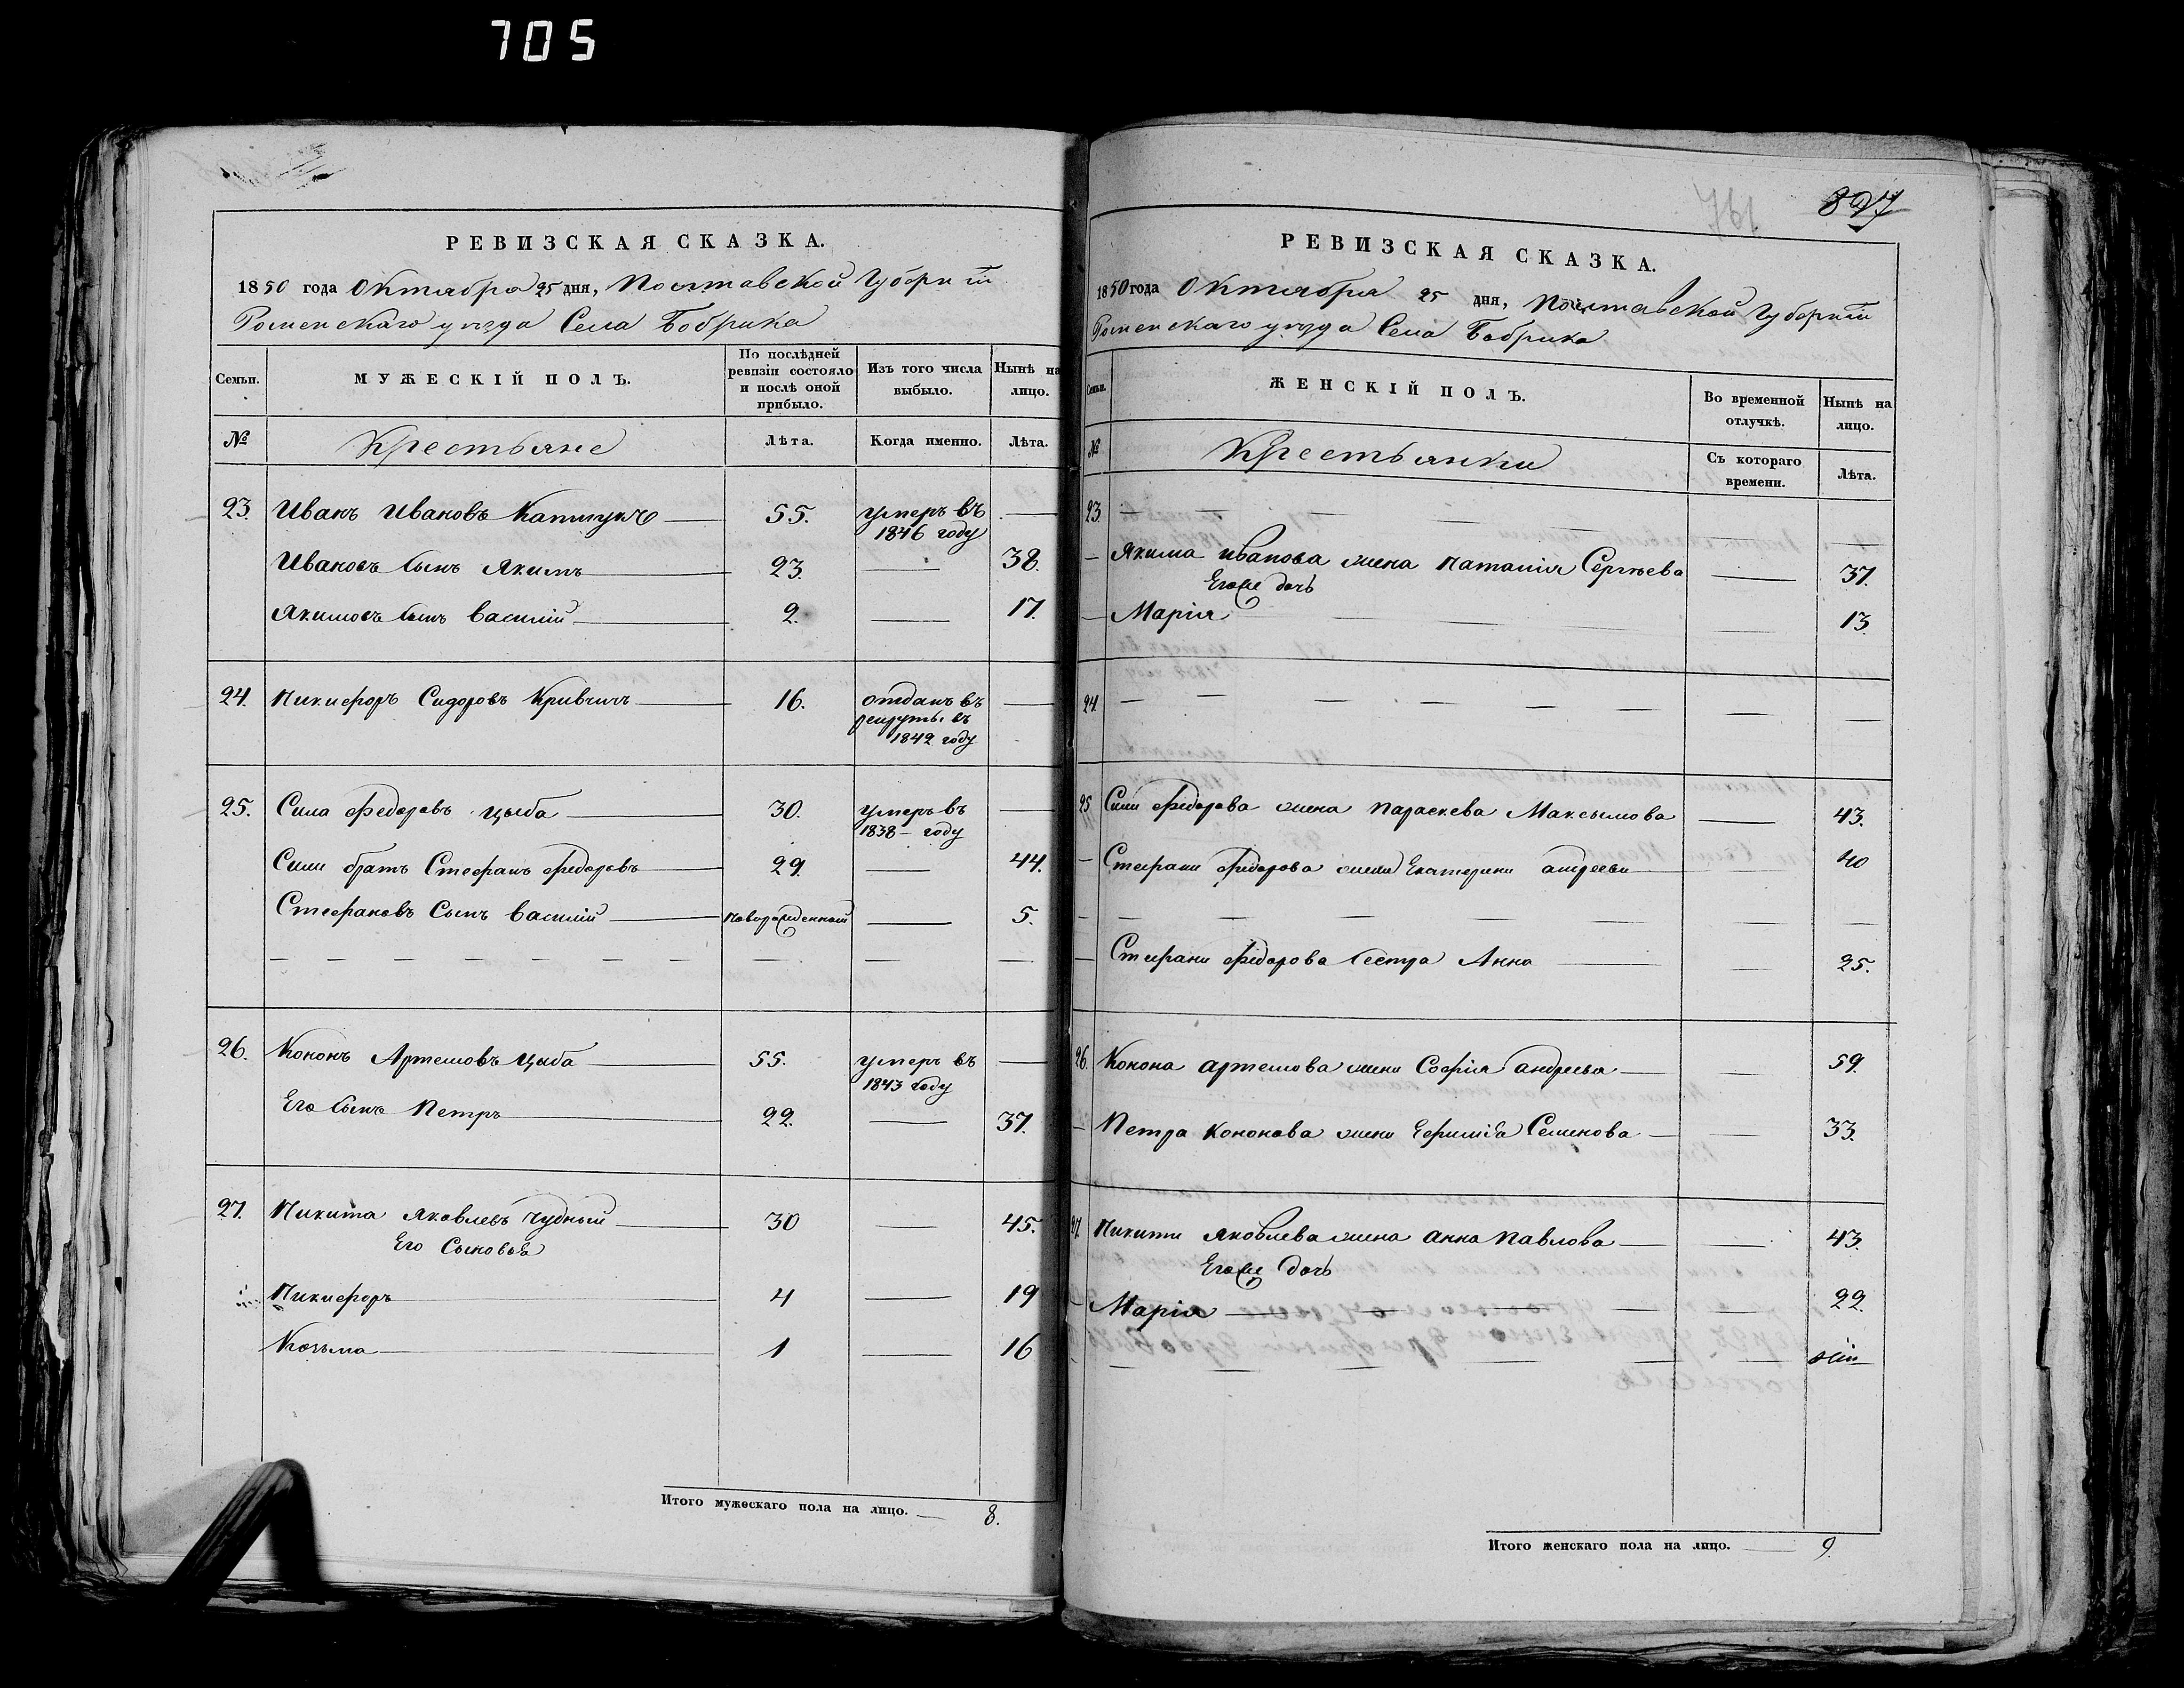 705
РЕВИЗСКАЯ СКАЗКА.
1850 года Октября 25 дня, Полтавской Губерніи
Роменскаго уѣзда Села Бобрика
Семьи.
МУЖЕСКІЙ ПОЛЪ.
По послѣдней ревизіи состояло и послѣ оной прибыло.
Изъ того числа выбыло.
Нынѣ на лицо.
№ Крестьяне Лѣта. Когда именно. Лѣта.
23. Иванъ Ивановъ 55. умеръ въ 1846 году —
Ивановъ сынъ Якимъ 23. — 38.
Якимовъ сынъ Василій 2. — 17.
24. Никифоръ Сидоровъ Кривчичъ 16. отданъ въ рекруты въ 1842 году —
25. Сила Федоровъ Цыба 30. умеръ въ 1838 году —
Силы братъ Стефанъ Федоровъ 29. — 44.
Стефановъ Сынъ Василій новорожденный — 5.
— — — — — — — — — —
26. Кононъ Артемовъ Цыба 55. умеръ въ 1843 году —
Его сынъ Петръ 22. — 37.
27. Никита Яковлевъ Чудный 30 — 45.
Его Сыновья
Никифоръ 4 — 19
Козьма 1 — 16
Итого мужескаго пола на лицо. — 8.
761
897
РЕВИЗСКАЯ СКАЗКА.
1850 года Октября 25 дня, Полтавской Губерніи
Роменскаго уѣзда Села Бобрика
Семьи.
ЖЕНСКІЙ ПОЛЪ.
Во временной отлучкѣ.
Нынѣ на лицо.
№ Крестьянки Съ котораго времени. Лѣта.
23. — — — — — — —
— Якима Иванова жена Наталія Сергѣева — 37.
Егоже дочь
— Марія — — — 13.
24. — — — — — — —
25 Силы Федорова жена Параскева Максымова — 43.
— Стефана Федорова жена Екатерина Андреева — 40
— — — — — — — —
— Стефана Федорова сестра Анна — 25.
26. Конона Артемова жена Софія Андреева — 59.
— Петра Кононова жена Ефимія Семенова — 33.
27. Никиты Яковлева жена Анна Павлова — 43.
Егоже дочь
— Марія — — — 22.
— — — — — —
Итого женскаго пола на лицо. — 9.